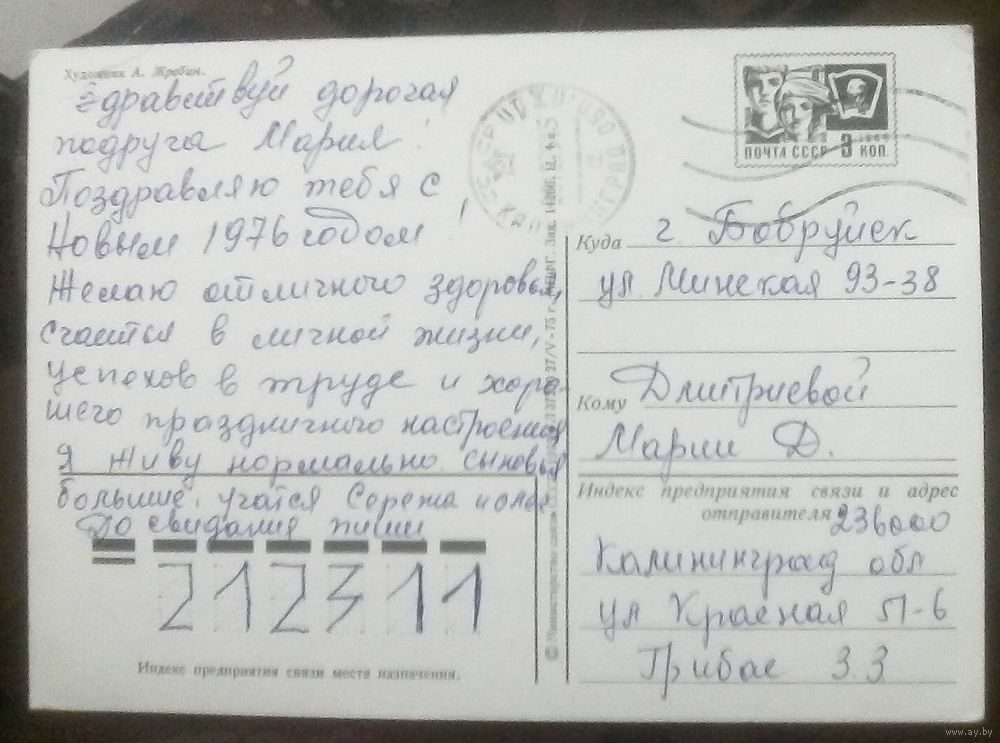 Художник А. Жребин.
Здравствуй дорогая
подруга Мария!
Поздравляю тебя с
Новым 1976 годом!
Желаю отличного здоровья,
счастья в личной жизни,
успехов в труде и хоро-
шего праздничного настроения
Я живу нормально. сыновья
большие, учатся Сережа и Олег
До свидания пиши
212311
Индекс предприятия связи места назначения.
27/V-75 г.
ПОЧТА СССР 3 КОП.
1966
Куда г. Бобруйск
ул Минская 93-38
Кому Дмитриевой
Марии Д.
Индекс предприятия связи и адрес
отправителя 236000
Калининград обл
ул Красная 51-6
Грибас З.З
www.ay.by